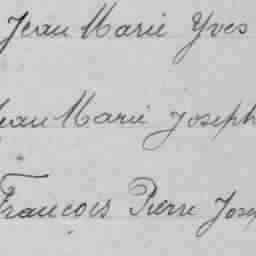 Jean Marie Yves
Jean Marie Joseph
Francois Pierre Jose